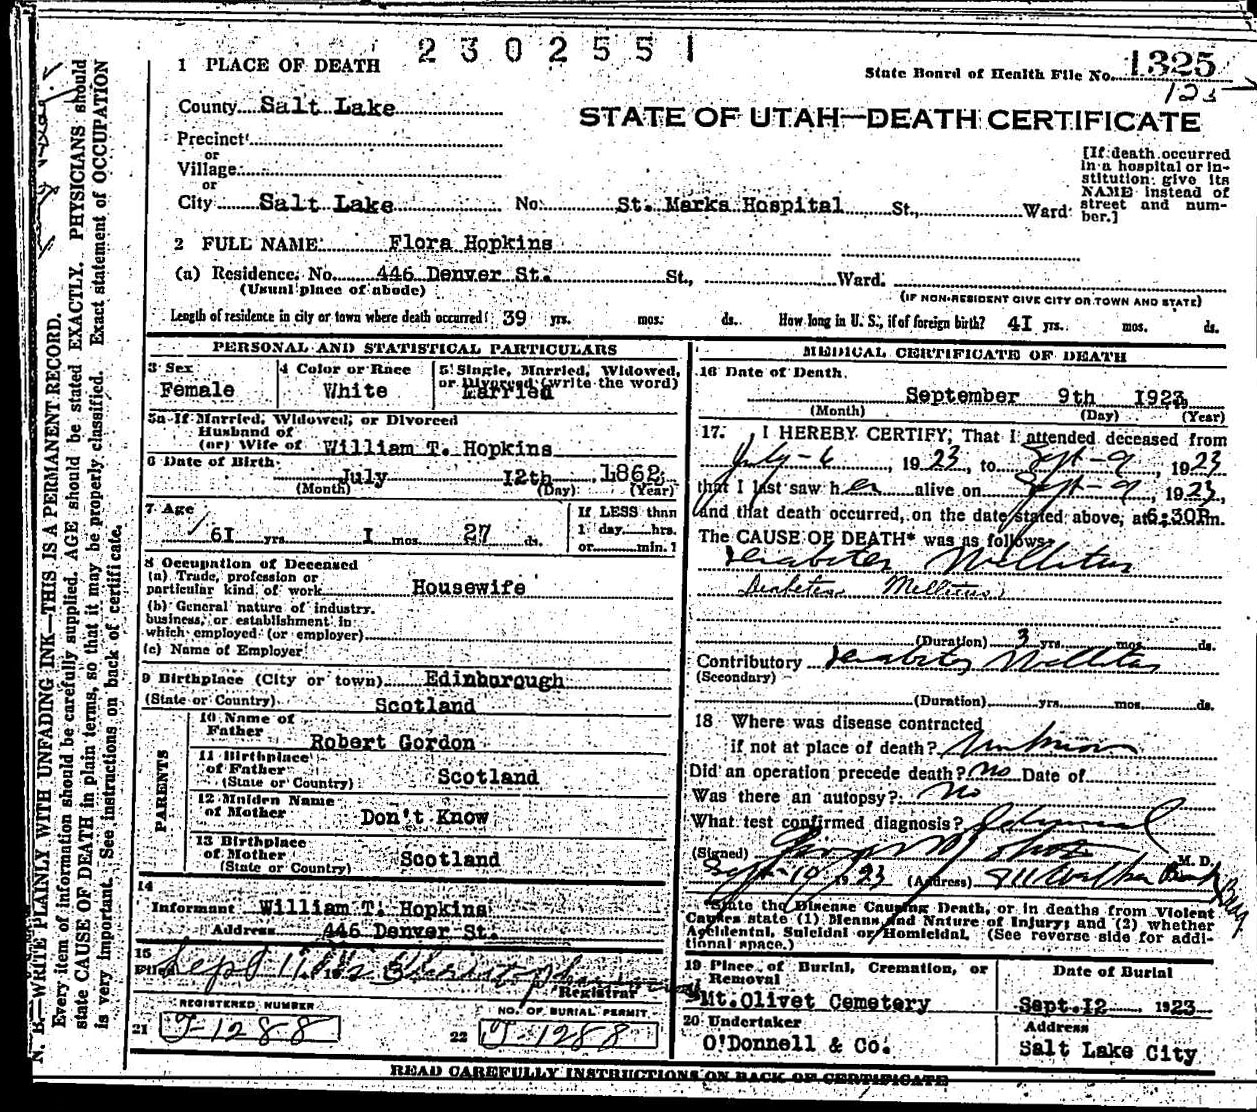 2302551
1 PLACE OF DEATH
State Board of Health File No. 1325
125
County Salt Lake
STATE OF UTAH—DEATH CERTIFICATE
Precinct
or
Village
or
City Salt Lake No. St. Marks Hospital St., Ward
[If death occurred in a hospital or institution give its NAME instead of street and number.]
2 FULL NAME Flora Hopkins
(a) Residence. No. 446 Denver St. St., Ward.
(Usual place of abode)
(IF NON-RESIDENT GIVE CITY OR TOWN AND STATE)
Length of residence in city or town where death occurred 39 yrs. mos. ds. How long in U. S., if of foreign birth? 41 yrs. mos. ds.
PERSONAL AND STATISTICAL PARTICULARS
3 Sex
Female
4 Color or Race
White
5 Single, Married, Widowed, or Divorced (write the word)
Married
5a If Married, Widowed, or Divorced
Husband of
(or) Wife of William T. Hopkins
6 Date of Birth
July 12th 1862
(Month) (Day) (Year)
7 Age
61 yrs. 1 mos. 27 ds.
If LESS than
1 day hrs.
or min.
8 Occupation of Deceased
(a) Trade, profession or
particular kind of work Housewife
(b) General nature of industry.
business, or establishment in
which employed (or employer)
(c) Name of Employer
9 Birthplace (City or town) Edinborough
(State or Country) Scotland
PARENTS
10 Name of
Father Robert Gordon
11 Birthplace
of Father
(State or Country) Scotland
12 Maiden Name
of Mother Don't Know
13 Birthplace
of Mother
(State or Country) Scotland
14
Informant William T. Hopkins
Address 446 Denver St.
15
Filed Sept
Registrar
REGISTERED NUMBER
21 J-1288
NO. OF BURIAL PERMIT
22 J-1288
MEDICAL CERTIFICATE OF DEATH
16 Date of Death.
September 9th 1923
(Month) (Day) (Year)
17. I HEREBY CERTIFY, That I attended deceased from
July-6, 1923, to Sept-9, 1923
that I last saw her alive on Sept-9, 1923,
and that death occurred, on the date stated above, at 6:30P.m.
The CAUSE OF DEATH* was as follows:
Diabetes Mellitus
Diabetes Mellitus
(Duration) 3 yrs. mos. ds.
Contributory Diabetes Mellitus
(Secondary)
(Duration) yrs. mos. ds.
18 Where was disease contracted
if not at place of death? Unknown
Did an operation precede death? No Date of
Was there an autopsy? No
What test confirmed diagnosis?
(Signed) M. D.
Sept-10 1923 (Address) Walker Bank Bldg
*State the Disease Causing Death, or in deaths from Violent
Causes state (1) Means and Nature of Injury; and (2) whether
Accidental, Suicidal or Homicidal. (See reverse side for addi-
tional space.)
19 Place of Burial, Cremation, or
Removal
Mt.Olivet Cemetery
Date of Burial
Sept.12 1923
20 Undertaker
O'Donnell & Co.
Address
Salt Lake City
READ CAREFULLY INSTRUCTIONS ON BACK OF CERTIFICATE
N. B.—WRITE PLAINLY WITH UNFADING INK—THIS IS A PERMANENT RECORD.
Every item of information should be carefully supplied. AGE should be stated EXACTLY. PHYSICIANS should
state CAUSE OF DEATH in plain terms, so that it may be properly classified. Exact statement of OCCUPATION
is very important. See instructions on back of certificate.